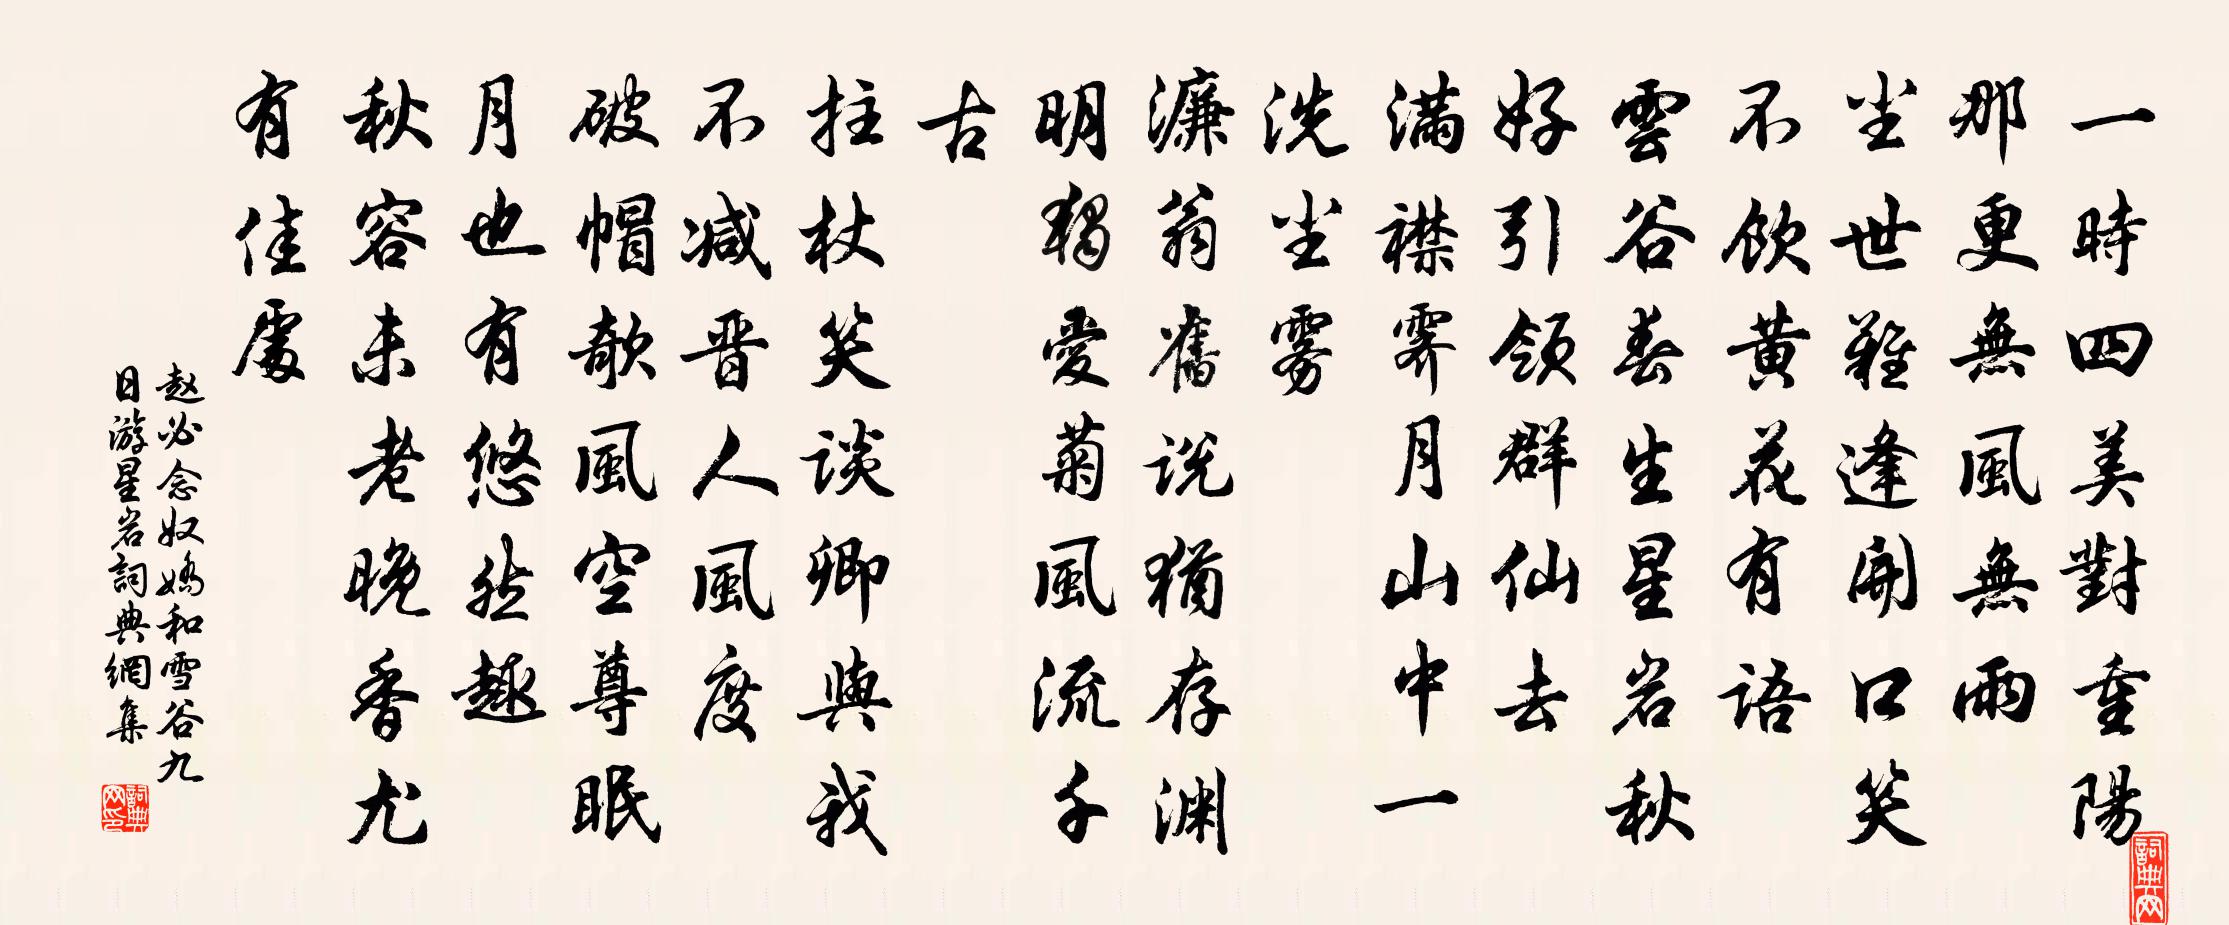 一時四美對重陽
那更無風無雨
尘世難逢開口笑
不飲黄花有語
雲谷春生星岩秋
好引領群仙去
满襟霁月山中一
洗尘雾
濂翁舊説猶存渊
明獨愛菊風流千
古
拄杖笑談卿與我
不减晋人風度
破帽欹風空尊眠
月也有悠然趣
秋容未老晚香尤
有佳處
赵必念奴嬌和雪谷九
日游星岩詞典網集
詞典网印
詞典网